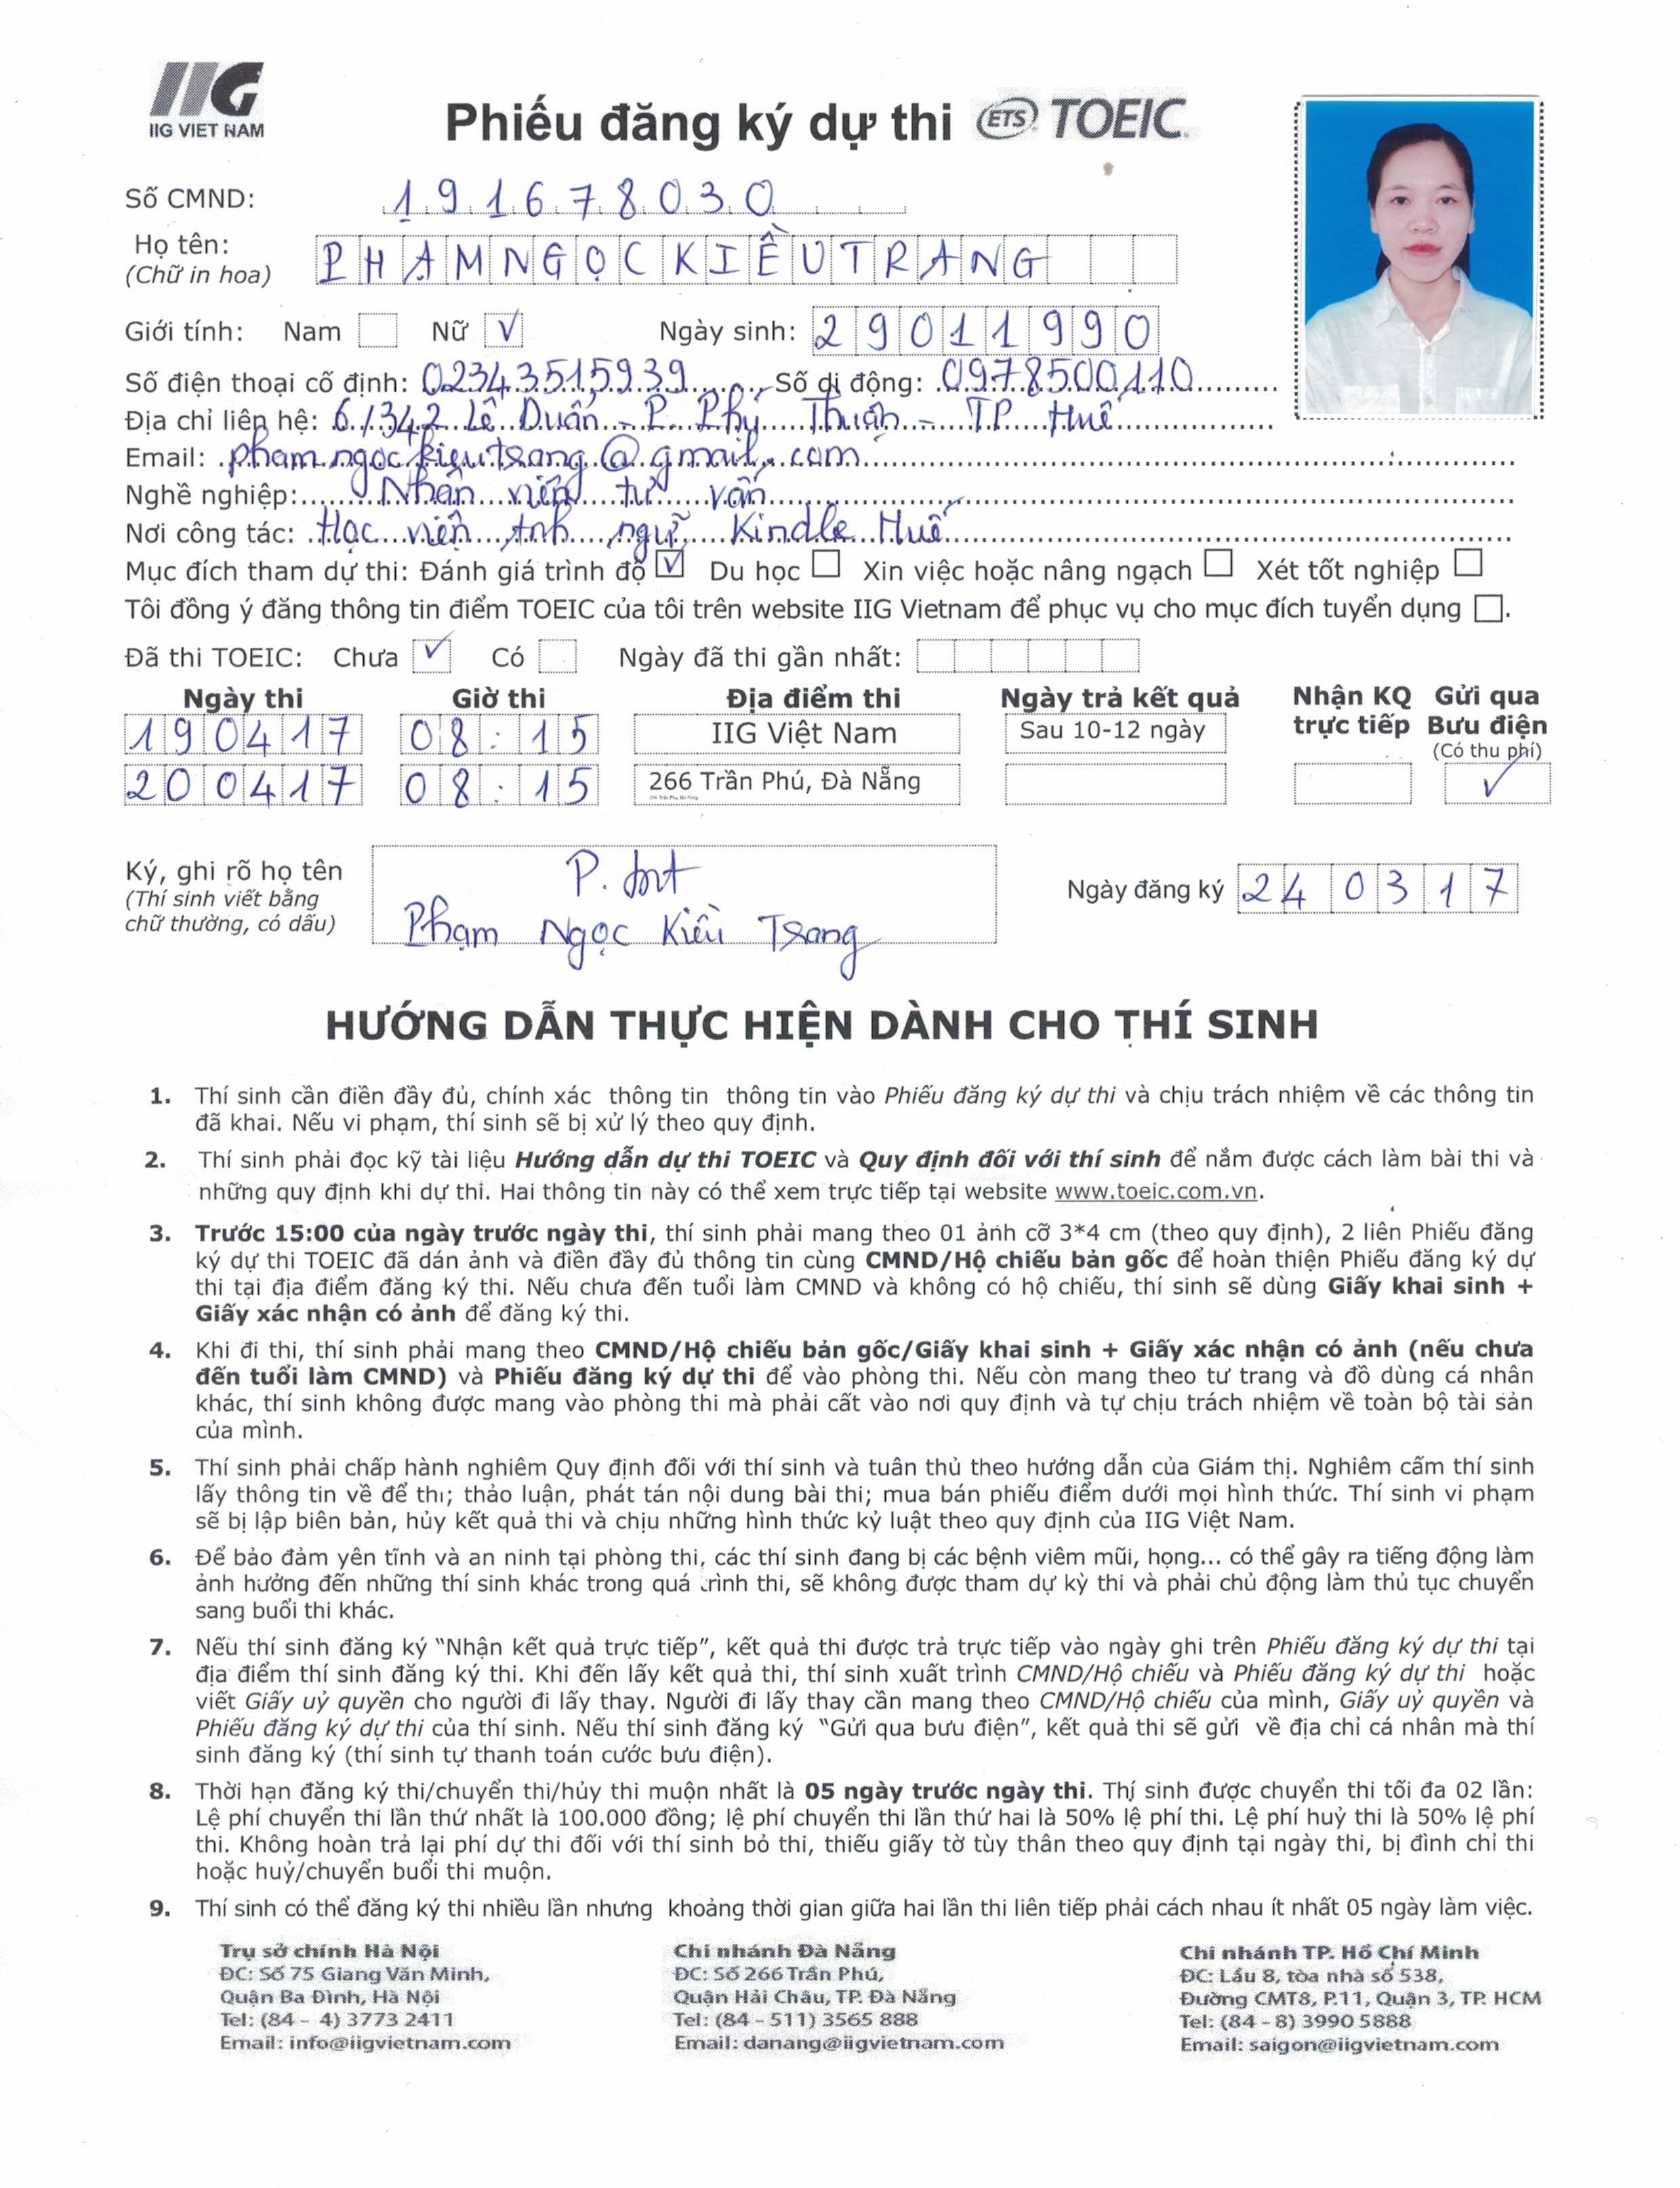 IIG
IIG VIET NAM
Phiếu đăng ký dự thi ETS TOEIC
Số CMND: 191678030
Họ tên: PHẠM NGỌC KIỀU TRANG
(Chữ in hoa)
Giới tính: Nam Nữ √ Ngày sinh: 29011990
Số điện thoại cố định: 02343515939 Số di động: 0978500110
Địa chỉ liên hệ: 6/342 Lê Duẩn - P. Phú Thuận - TP Huế
Email: phamngockieutrang@gmail.com
Nghề nghiệp: Nhân viên tư vấn
Nơi công tác: Học viện Anh ngữ Kindle Huế
Mục đích tham dự thi: Đánh giá trình độ √ Du học Xin việc hoặc nâng ngạch Xét tốt nghiệp
Tôi đồng ý đăng thông tin điểm TOEIC của tôi trên website IIG Vietnam để phục vụ cho mục đích tuyển dụng .
Đã thi TOEIC: Chưa √ Có Ngày đã thi gần nhất:
Ngày thi Giờ thi Địa điểm thi Ngày trả kết quả Nhận KQ trực tiếp Gửi qua Bưu điện (Có thu phí)
190417 08:15 IIG Việt Nam Sau 10-12 ngày
200417 08:15 266 Trần Phú, Đà Nẵng √
Ký, ghi rõ họ tên
(Thí sinh viết bằng
chữ thường, có dấu)
Phạm Ngọc Kiều Trang
Ngày đăng ký 240317
HƯỚNG DẪN THỰC HIỆN DÀNH CHO THÍ SINH
1. Thí sinh cần điền đầy đủ, chính xác thông tin thông tin vào Phiếu đăng ký dự thi và chịu trách nhiệm về các thông tin
đã khai. Nếu vi phạm, thí sinh sẽ bị xử lý theo quy định.
2. Thí sinh phải đọc kỹ tài liệu Hướng dẫn dự thi TOEIC và Quy định đối với thí sinh để nắm được cách làm bài thi và
những quy định khi dự thi. Hai thông tin này có thể xem trực tiếp tại website www.toeic.com.vn.
3. Trước 15:00 của ngày trước ngày thi, thí sinh phải mang theo 01 ảnh cỡ 3*4 cm (theo quy định), 2 liên Phiếu đăng
ký dự thi TOEIC đã dán ảnh và điền đầy đủ thông tin cùng CMND/Hộ chiếu bản gốc để hoàn thiện Phiếu đăng ký dự
thi tại địa điểm đăng ký thi. Nếu chưa đến tuổi làm CMND và không có hộ chiếu, thí sinh sẽ dùng Giấy khai sinh +
Giấy xác nhận có ảnh để đăng ký thi.
4. Khi đi thi, thí sinh phải mang theo CMND/Hộ chiếu bản gốc/Giấy khai sinh + Giấy xác nhận có ảnh (nếu chưa
đến tuổi làm CMND) và Phiếu đăng ký dự thi để vào phòng thi. Nếu còn mang theo tư trang và đồ dùng cá nhân
khác, thí sinh không được mang vào phòng thi mà phải cất vào nơi quy định và tự chịu trách nhiệm về toàn bộ tài sản
của mình.
5. Thí sinh phải chấp hành nghiêm Quy định đối với thí sinh và tuân thủ theo hướng dẫn của Giám thị. Nghiêm cấm thí sinh
lấy thông tin về đề thi; thảo luận, phát tán nội dung bài thi; mua bán phiếu điểm dưới mọi hình thức. Thí sinh vi phạm
sẽ bị lập biên bản, hủy kết quả thi và chịu những hình thức kỷ luật theo quy định của IIG Việt Nam.
6. Để bảo đảm yên tĩnh và an ninh tại phòng thi, các thí sinh đang bị các bệnh viêm mũi, họng... có thể gây ra tiếng động làm
ảnh hưởng đến những thí sinh khác trong quá trình thi, sẽ không được tham dự kỳ thi và phải chủ động làm thủ tục chuyển
sang buổi thi khác.
7. Nếu thí sinh đăng ký “Nhận kết quả trực tiếp”, kết quả thi được trả trực tiếp vào ngày ghi trên Phiếu đăng ký dự thi tại
địa điểm thí sinh đăng ký thi. Khi đến lấy kết quả thi, thí sinh xuất trình CMND/Hộ chiếu và Phiếu đăng ký dự thi hoặc
viết Giấy uỷ quyền cho người đi lấy thay. Người đi lấy thay cần mang theo CMND/Hộ chiếu của mình, Giấy uỷ quyền và
Phiếu đăng ký dự thi của thí sinh. Nếu thí sinh đăng ký “Gửi qua bưu điện”, kết quả thi sẽ gửi về địa chỉ cá nhân mà thí
sinh đăng ký (thí sinh tự thanh toán cước bưu điện).
8. Thời hạn đăng ký thi/chuyển thi/hủy thi muộn nhất là 05 ngày trước ngày thi. Thí sinh được chuyển thi tối đa 02 lần:
Lệ phí chuyển thi lần thứ nhất là 100.000 đồng; lệ phí chuyển thi lần thứ hai là 50% lệ phí thi. Lệ phí huỷ thi là 50% lệ phí
thi. Không hoàn trả lại phí dự thi đối với thí sinh bỏ thi, thiếu giấy tờ tùy thân theo quy định tại ngày thi, bị đình chỉ thi
hoặc huỷ/chuyển buổi thi muộn.
9. Thí sinh có thể đăng ký thi nhiều lần nhưng khoảng thời gian giữa hai lần thi liên tiếp phải cách nhau ít nhất 05 ngày làm việc.
Trụ sở chính Hà Nội
ĐC: Số 75 Giang Văn Minh,
Quận Ba Đình, Hà Nội
Tel: (84 - 4) 3773 2411
Email: info@iigvietnam.com
Chi nhánh Đà Nẵng
ĐC: Số 266 Trần Phú,
Quận Hải Châu, TP. Đà Nẵng
Tel: (84 - 511) 3565 888
Email: danang@iigvietnam.com
Chi nhánh TP. Hồ Chí Minh
ĐC: Lầu 8, tòa nhà số 538,
Đường CMT8, P.11, Quận 3, TP. HCM
Tel: (84 - 8) 3990 5888
Email: saigon@iigvietnam.com